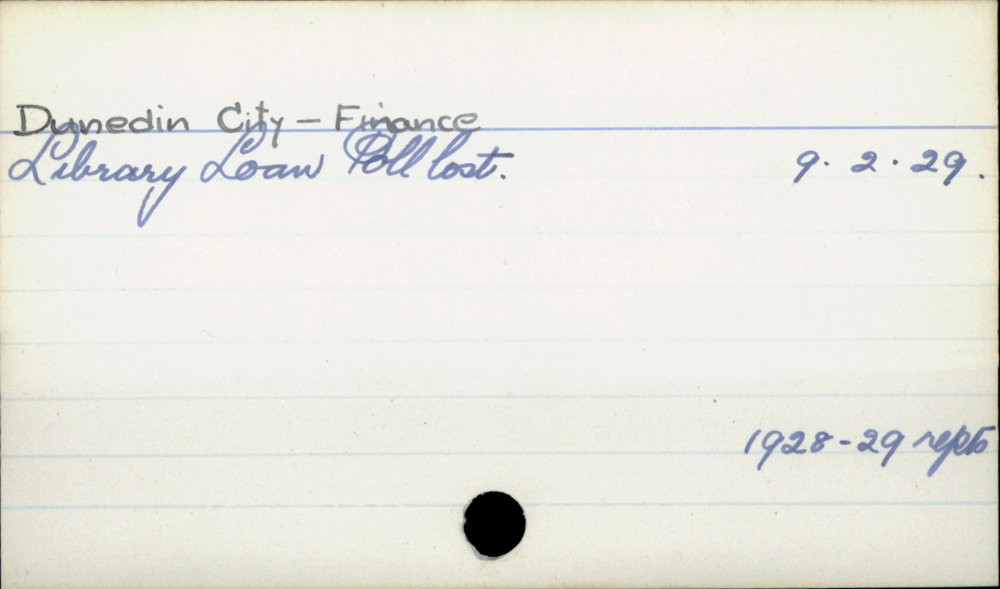 Dunedin City – Finance
Library Loan Poll lost. 9. 2. 29.
1928-29 repts